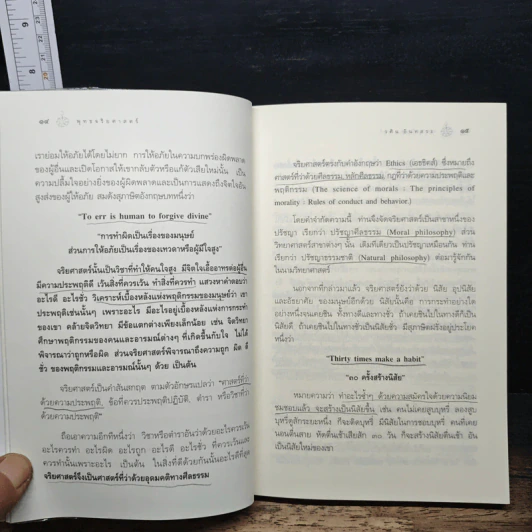 ๑๔ พุทธจริยศาสตร์
เราย่อมให้อภัยได้โดยไม่ยาก การให้อภัยในความบกพร่องผิดพลาด
ของผู้อื่นและเปิดโอกาสให้เขากลับตัวหรือแก้ตัวเสียใหม่นั้น เป็น
ความปลื้มใจอย่างยิ่งของผู้ผิดพลาดและเป็นการแสดงถึงจิตใจอัน
สูงส่งของผู้ให้อภัย สมดังสุภาษิตอังกฤษบทหนึ่งว่า
"To err is human to forgive divine"
"การทำผิดเป็นเรื่องของมนุษย์
ส่วนการให้อภัยเป็นเรื่องของเทวดาหรือผู้มีใจสูง"
จริยศาสตร์นั้นเป็นวิชาที่ทำให้คนใจสูง มีจิตใจเอื้ออาทรต่อผู้อื่น
มีความประพฤติดี เว้นสิ่งที่ควรเว้น ทำสิ่งที่ควรทำ แสวงหาคำตอบว่า
อะไรดี อะไรชั่ว วิเคราะห์เบื้องหลังแห่งพฤติกรรมของมนุษย์ว่า เขา
ประพฤติเช่นนั้นๆ เพราะอะไร มีอะไรอยู่เบื้องหลังแห่งการกระทำ
ของเขา คล้ายจิตวิทยา มีข้อแตกต่างเพียงเล็กน้อย เช่น จิตวิทยา
ศึกษาพฤติกรรมของคนและอารมณ์ต่างๆ ที่เกิดขึ้นกับใจ ไม่ได้
พิจารณาว่าถูกหรือผิด ส่วนจริยศาสตร์พิจารณาถึงความถูก ผิด ดี
ชั่ว ของพฤติกรรมและอารมณ์นั้นๆ ด้วย
จริยศาสตร์เป็นคำสันสกฤต ตามตัวอักษรแปลว่า "ศาสตร์ที่ว่า
ด้วยความประพฤติ, ข้อที่ควรประพฤติปฏิบัติ, ตำรา หรือวิชาที่ว่า
ด้วยความประพฤติ"
ถือเอาความอีกทีหนึ่งว่า วิชาหรือตำราอันว่าด้วยอะไรควรเว้น
อะไรควรทำ อะไรผิด อะไรถูก อะไรดี อะไรชั่ว ที่ควรเว้นและ
ควรทำนั้นเพราะอะไร เป็นต้น ในสิ่งที่ดีด้วยกันนั้นอะไรดีที่สุด
จริยศาสตร์จึงเป็นศาสตร์ที่ว่าด้วยอุดมคติทางศีลธรรม
วศิน อินทสระ ๑๕
จริยศาสตร์ตรงกับคำอังกฤษว่า Ethics (เอธซิคส์) ซึ่งหมายถึง
ศาสตร์ที่ว่าด้วยศีลธรรม หลักศีลธรรม กฎที่ว่าด้วยความประพฤติและ
พฤติกรรม (The science of morals : The principles of
morality : Rules of conduct and behavior.)
โดยคำจำกัดความนี้ ท่านจึงจัดจริยศาสตร์เป็นสาขาหนึ่งของ
ปรัชญา เรียกว่า ปรัชญาศีลธรรม (Moral philosophy) ส่วน
วิทยาศาสตร์สาขาต่างๆ นั้น เดิมทีเดียวเป็นปรัชญาเหมือนกัน ท่าน
เรียกว่า ปรัชญาธรรมชาติ (Natural philosophy) ต่อมารู้จักกัน
ในนามวิทยาศาสตร์
นอกจากที่กล่าวมาแล้ว จริยศาสตร์ยังว่าด้วย นิสัย อุปนิสัย
และอัธยาศัย ของมนุษย์อีกด้วย นิสัยนั้นคือ การกระทำอย่างใด
อย่างหนึ่งจนเคยชิน ทั้งทางดีและทางชั่ว ถ้าเคยชินในทางดีก็เป็น
นิสัยดี ถ้าเคยชินไปในทางชั่วเป็นนิสัยชั่ว มีสุภาษิตฝรั่งอยู่ประโยค
หนึ่งว่า
"Thirty times make a habit"
"๓๐ ครั้งสร้างนิสัย"
หมายความว่า ทำอะไรซ้ำๆ ด้วยความสมัครใจด้วยความนิยม
ชมชอบแล้ว จะสร้างเป็นนิสัยขึ้น เช่น คนไม่เคยสูบบุหรี่ ลองสูบ
บุหรี่ดูสักระยะหนึ่ง ก็จะติดบุหรี่ มีนิสัยในการชอบบุหรี่ คนที่เคย
นอนตื่นสาย หัดตื่นเช้าเสียสัก ๓๐ วัน ก็จะสร้างนิสัยตื่นเช้า อัน
เป็นนิสัยใหม่ของเขา